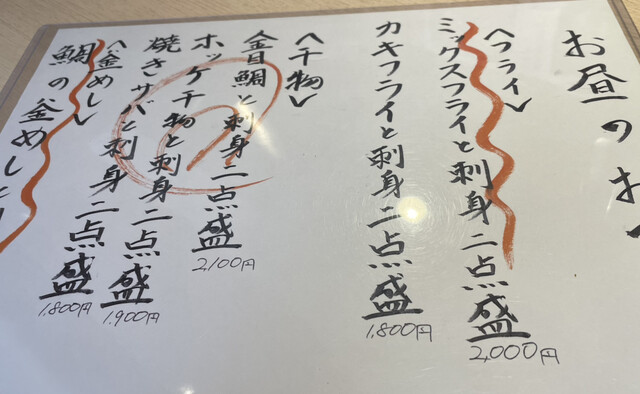 お昼のお
〈フライ〉
ミックスフライと刺身二点盛
2,000円
カキフライと刺身二点盛
1,800円
〈干物〉
金目鯛と刺身二点盛
2,100円
ホッケ干物と刺身二点盛
1,900円
焼きサバと刺身二点盛
1,800円
〈釜めし〉
鯛の釜めしと